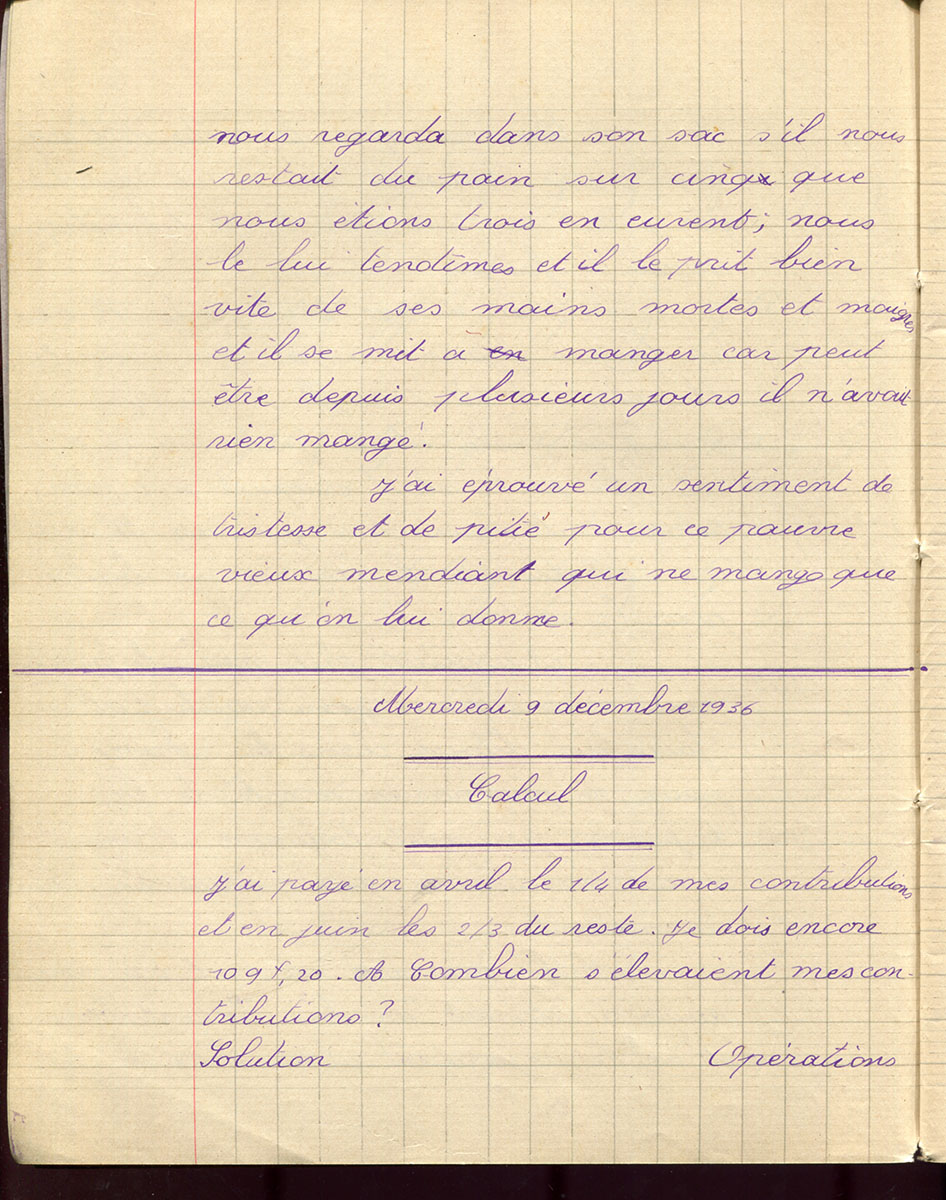 nous regarda dans son sac s'il nous
restait du pain sur cinq que
nous étions trois en eurent; nous
le lui tendîmes et il le prit bien
vite de ses mains mortes et maigres
et il se mit a en manger car peut
être depuis plusieurs jours il n'avait
rien mangé.
J'ai éprouvé un sentiment de
tristesse et de pitié pour ce pauvre
vieux mendiant qui ne mange que
ce qu'on lui donne.
Mercredi 9 décembre 1936
Calcul
J'ai payé en avril le 1/4 de mes contributions
et en juin les 2/3 du reste. Je dois encore
109f,20. A Combien s'élevaient mes con-
tributions ?
Solution Opérations